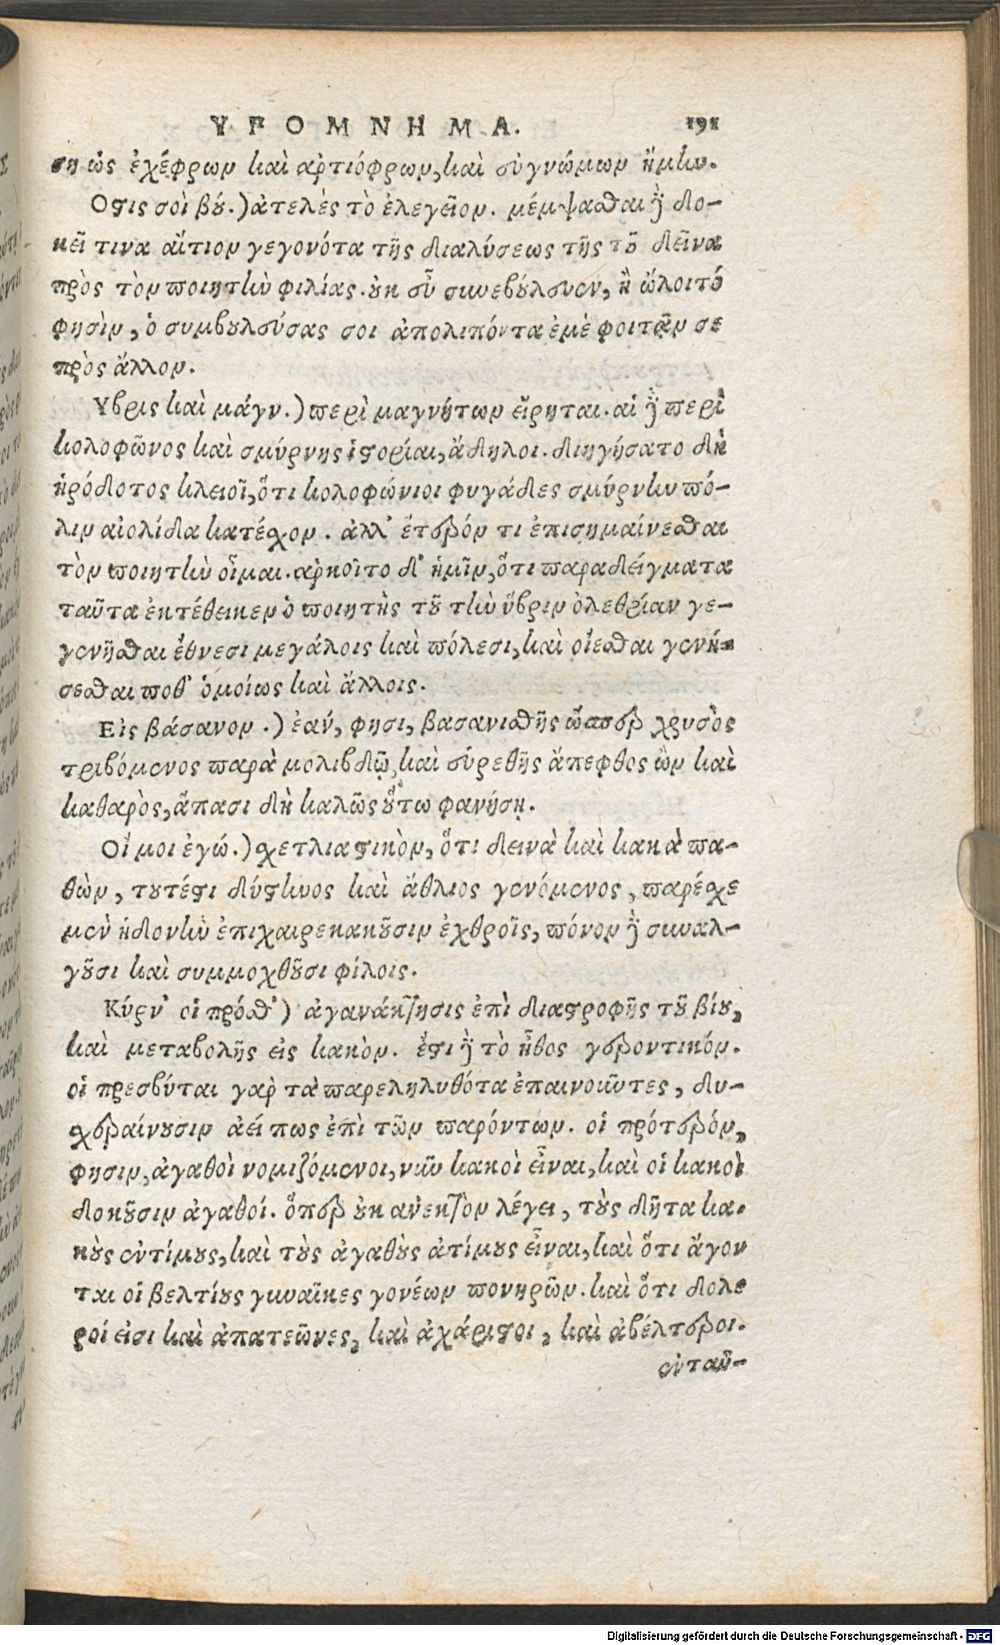 ΥΠΟΜΝΗΜΑ. 191
ση ὡς ἐχέφρων καὶ ἀρτιόφρων, καὶ εὐγνώμων ἥκων.
Οστις σοὶ βού.) ἀτελὲς τὸ ἐλεγεῖον. μέμψασθαι δὲ δο-
κεῖ τινα αἴτιον γεγονότα τῆς διαλύσεως τῆς τοῦ δεῖνα
πρὸς τὸν ποιητὴν φιλίας. οὐκ εὖ συνεβούλευεν, ἢ ὤλοιτό
φησὶν, ὁ συμβουλεύσας σοι ἀπολιπόντα ἐμὲ φοιτᾶν σε
πρὸς ἄλλον.
Υβρις καὶ μάγν.) περὶ μαγνήτων εἴρηται. αἱ δὲ περὶ
κολοφῶνος καὶ σμύρνης ἱστορίαι, ἄδηλοι. διηγήσατο δὴ
ἡρόδοτος κλειοῖ, ὅτι κολοφώνιοι φυγάδες σμύρνην πό-
λιν αἰολίδα κατέσχον. ἀλλ' ἕτερόν τι ἐπισημαίνεσθαι
τὸν ποιητὴν οἶμαι. ἀρκοῖτο δ' ἡμῖν, ὅτι παραδείγματα
ταῦτα ἐκτέθεικεν ὁ ποιητὴς τοῦ τὴν ὕβριν ὀλεθρίαν γε-
γενῆσθαι ἔθνεσι μεγάλοις καὶ πόλεσι, καὶ οἴεσθαι γενή-
σεσθαι ποθ' ὁμοίως καὶ ἄλλοις.
Εἰς βάσανον.) ἐαν, φησι, βασανισθῆς ὥσπερ χρυσὸς
τριβόμενος παρὰ μολιβδῷ, καὶ εὑρεθῆς ἄπεφθος ὢν καὶ
καθαρὸς, ἅπασι δὴ καλῶς οὕτω φανήσῃ.
Οἴ μοι ἐγώ.) σχετλιαστικὸν, ὅτι δεινὰ καὶ κακὰ πα-
θὼν, τουτέστι δύστηνος καὶ ἄθλιος γενόμενος, παρέσχε
μὲν ἡδονὴν ἐπιχαιρεκακοῦσιν ἐχθροῖς, πόνον δὲ συναλ-
γοῦσι καὶ συμμοχθοῦσι φίλοις.
Κύρν' οἱ πρόσθ') ἀγανάκτησις ἐπὶ διαστροφῆς τοῦ βίου,
καὶ μεταβολῆς εἰς κακὸν. ἔστι δὲ τὸ ἦθος γεροντικόν.
οἱ πρεσβύται γαρ τὰ παρεληλυθότα ἐπαινοῦντες, δυ-
σχεραίνουσιν ἀεί πως ἐπὶ τῶν παρόντων. οἱ πρότερόν,
φησιν, ἀγαθοὶ νομιζόμενοι, νῦν κακοὶ εἶναι, καὶ οἱ κακοὶ
δοκοῦσιν ἀγαθοί. ὅπερ οὐκ ἀνεκτὸν λέγει, τοὺς δῆτα κα-
κοὺς ἐντίμους, καὶ τοὺς ἀγαθοὺς ἀτίμους εἶναι, καὶ ὅτι ἄγον
ται οἱ βελτίους γυναῖκες γονέων πονηρῶν. καὶ ὅτι δολε
ροί εἰσι καὶ ἀπατεῶνες, καὶ ἀχάριστοι, καὶ ἀβέλτεροι.
ἐνταῦ-
Digitalisierung gefördert durch die Deutsche Forschungsgemeinschaft - DFG